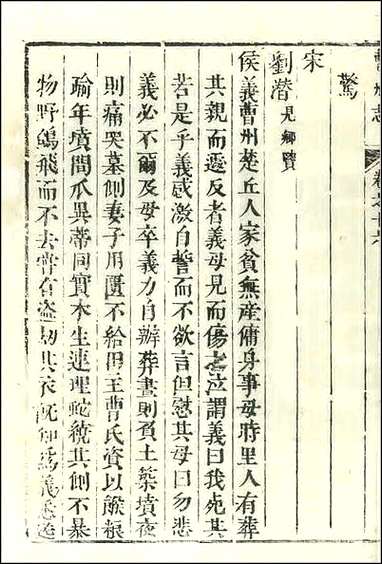 曹州志 卷之十六
驚
宋
劉潛見鄉賢
侯義曹州楚丘人家貧無產傭身事母時里人有葬
其親而遷反者義母見而傷之泣謂義曰我死其
若是乎義感激自誓而不欲言但慰其母曰勿悲
義必不爾及母卒義力自辦葬晝則負土築墳夜
則痛哭墓側妻子用匱不給田王曹氏資以餱糧
踰年墳間瓜異蒂同實木生連理蛇繞其側不暴
物野鴿飛而不去嘗有盜刼其衣既知為義悉還